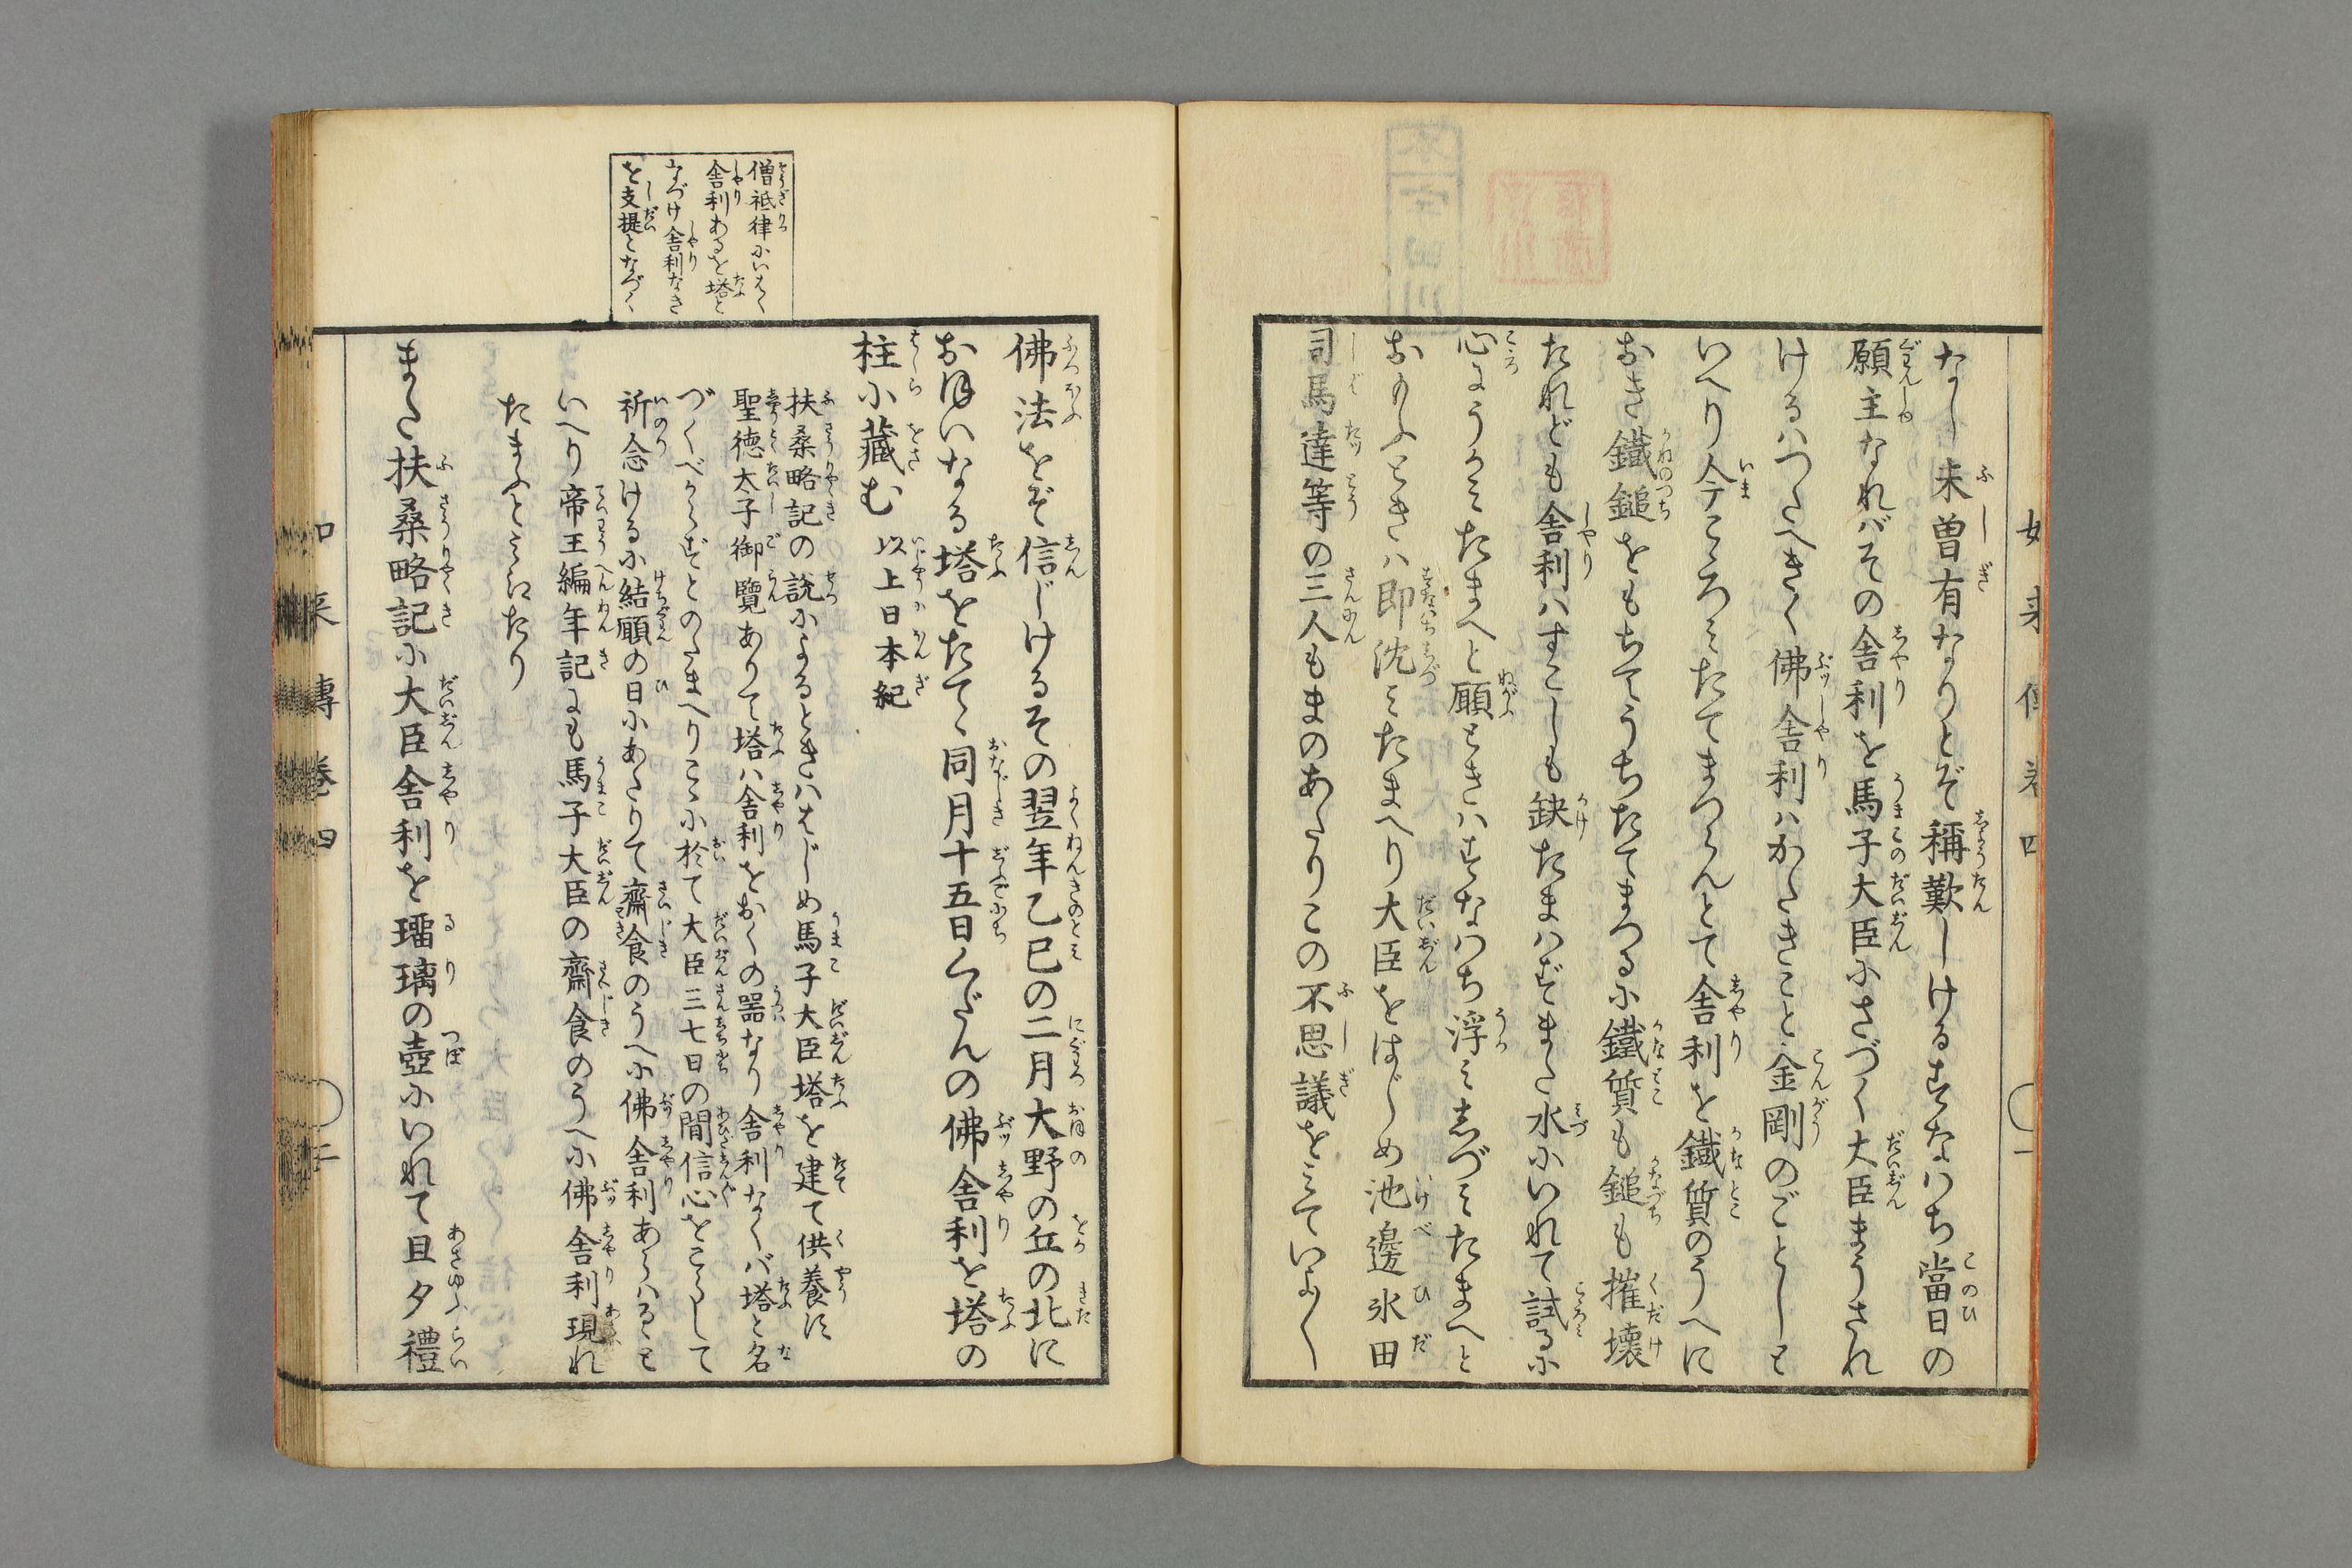 なし未曽有なりとぞ稱歎しけるすなハち當日の
願主なれバその舎利を馬子大臣にさづく大臣まうされ
けるハつたへきく佛舎利ハかたきこと金剛のごとしと
いへり今こゝろミたてまつらんとて舎利を鐵質のうへに
おき鐵鎚をもちてうちたてまつるに鐵質も鎚も摧壊
たれども舎利ハすこしも缺たまハずまた水にいれて試るに
心にうかミたまへと願ときハすなハち浮ミしづミたまへと
おもふときハ即沈ミたまへり大臣をはじめ池邊氷田
司馬達等の三人もまのあたりこの不思議をミていよ〱
佛法をぞ信じけるその翌年乙巳の二月大野の丘の北に
おほいなる塔をたてゝ同月十五日くだんの佛舎利を塔の
柱に藏む 以上日本紀
扶桑略記の説によるときハはじめ馬子大臣塔を建て供養に
聖徳太子御覽ありて塔ハ舎利をおくの噐なり舎利なくバ塔と名
づくべからずとのたまへりこゝに於て大臣三七日の間信心をこらして
祈念けるに結願の日にあたりて齋食のうへに佛舎利あらハると
いへり帝王編年記にも馬子大臣の齋食のうへに佛舎利現れ
たまふとミえたり
また扶桑略記に大臣舎利を瑠璃の壺にいれて旦夕禮
僧祇律にいはく
舎利あるを塔と
なづけ舎利なき
を支提となづく
如来傳巻四